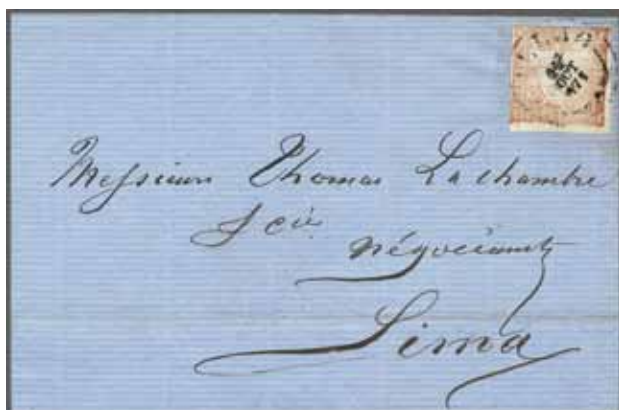 Messieurs Thomas Lachambre
& Cie
Négociants
Lima